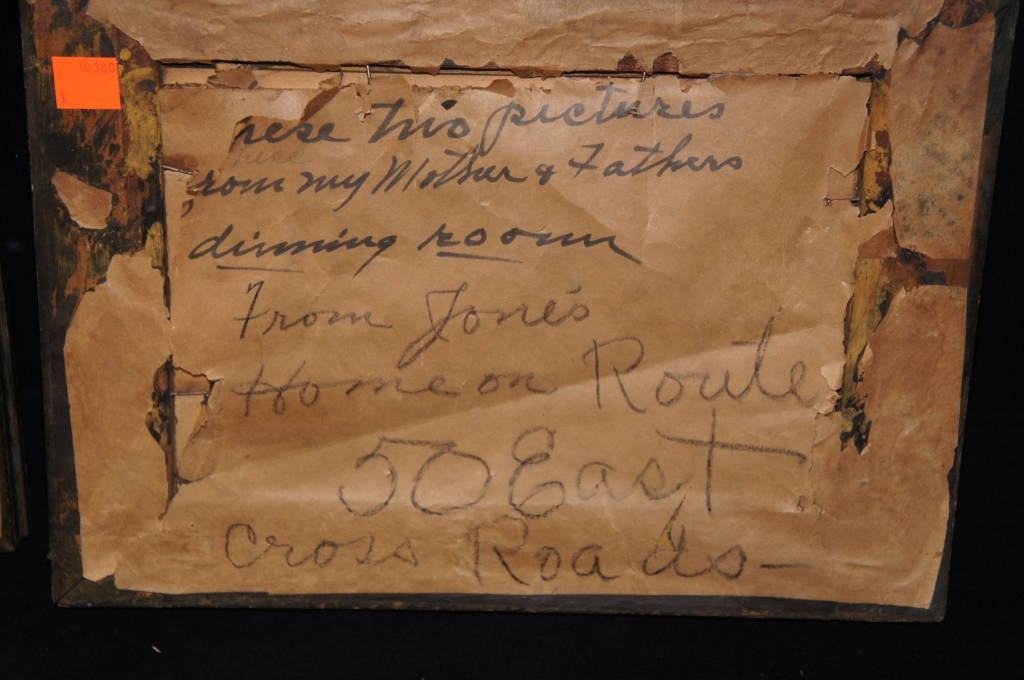 10380
$
hese two pictures
hese
rom my Mother & Fathers
dinning room
From Jone's
Home on Route
50 East
Cross Roads-